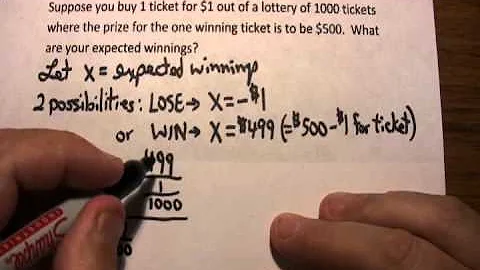 Suppose you buy 1 ticket for $1 out of a lottery of 1000 tickets
where the prize for the one winning ticket is to be $500. What
are your expected winnings?
Let X = expected winnings
2 possibilities: LOSE → X = -$1
or WIN → X = $499 (= $500 - $1 for ticket)
499
1
1000
Sharpie